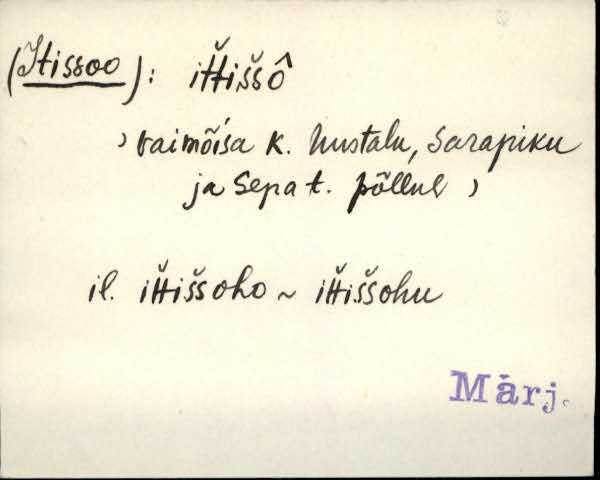 (Itissoo): iťtišsô
, Vaimõisa k. Uustalu, Sarapiku
ja Sepa t. põllul ,
il. iťtiššoho ~ iťtiššohu
Märj.